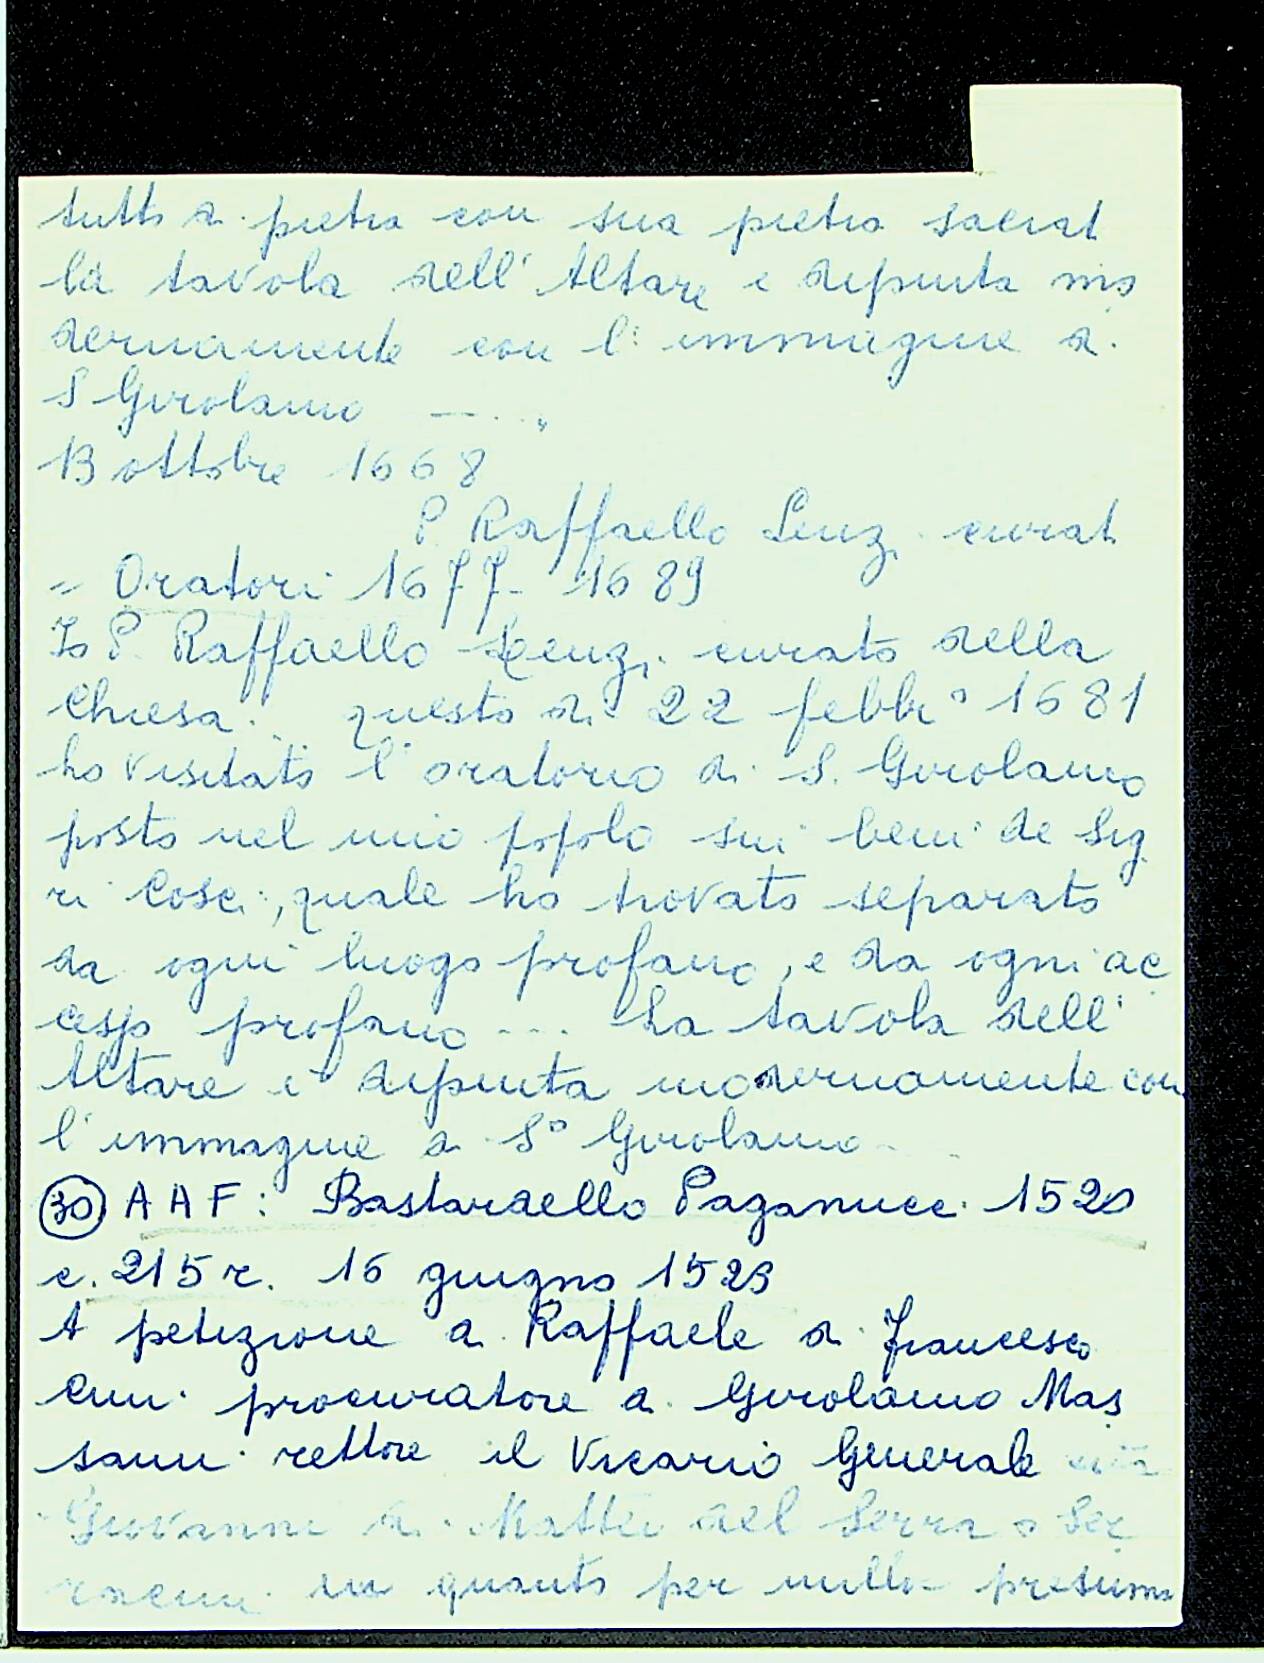 tutto di pietra con sua pietra sacrat
la tavola dell'Altare è dipinta mo
dernamente con l'immagine di
S Girolamo ----"
13 ottobre 1668
P Raffaello Lenzi curat
= Oratori 1677-1689
Io P. Raffaello Lenzi curato della
Chiesa.. questo dì 22 febbr° 1681
ho visitato l'oratorio di S. Girolamo
posto nel mio popolo sui beni de Sig
ri Cosci, quale ho trovato separato
da ogni luogo profano, e da ogni ac
cesso profano --- La tavola dell'
Altare è dipinta modernamente con
l'immagine di S° Girolamo --
30 AAF: Bastardello Paganucci 1520
c. 215r. 16 giugno 1523
A petizione di Raffaele di Francesco
procuratore di Girolamo Mas
sami rettore il Vicario Generale
Giovanni di Matteo del Serra o Ser
in quanto per nulla presume